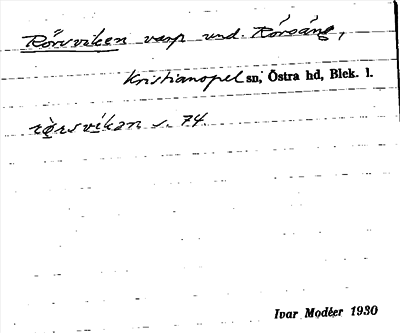 Rörsviken varp und. Rörsäng,
Kristianopel sn, Östra hd, Blek. l.
rö̀rsvíkan s. 74.
Ivar Modéer 1930